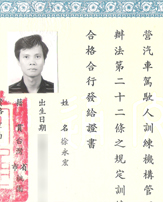 營汽車駕駛人訓練機構管
辦法第二十二條之規定訓
合格合行發給證書
姓 名 徐永宏
出生日期